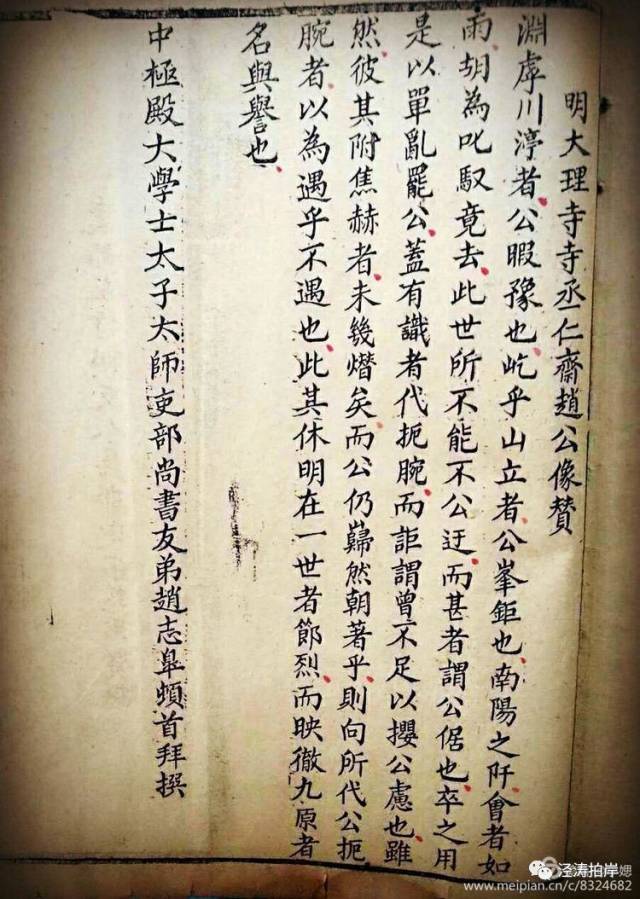 明大理寺寺丞仁齋趙公像贊
淵虖川渟者公暇豫也屹乎山立者公峯鉅也南陽之阡會者如
雨胡為叱馭竟去此世所不能不公迂而甚者謂公倨也卒之用
是以單亂罷公蓋有識者代扼腕而詎謂曾不足以攖公慮也雖
然彼其附焦赫者未幾熸矣而公仍巋然朝著乎則向所代公扼
腕者以為遇乎不遇也此其休明在一世者節烈而映徹九原者
名與譽也
中極殿大學士太子太師吏部尚書友弟趙志皐頓首拜撰
泾涛拍岸
www.meipian.cn/c/8324682